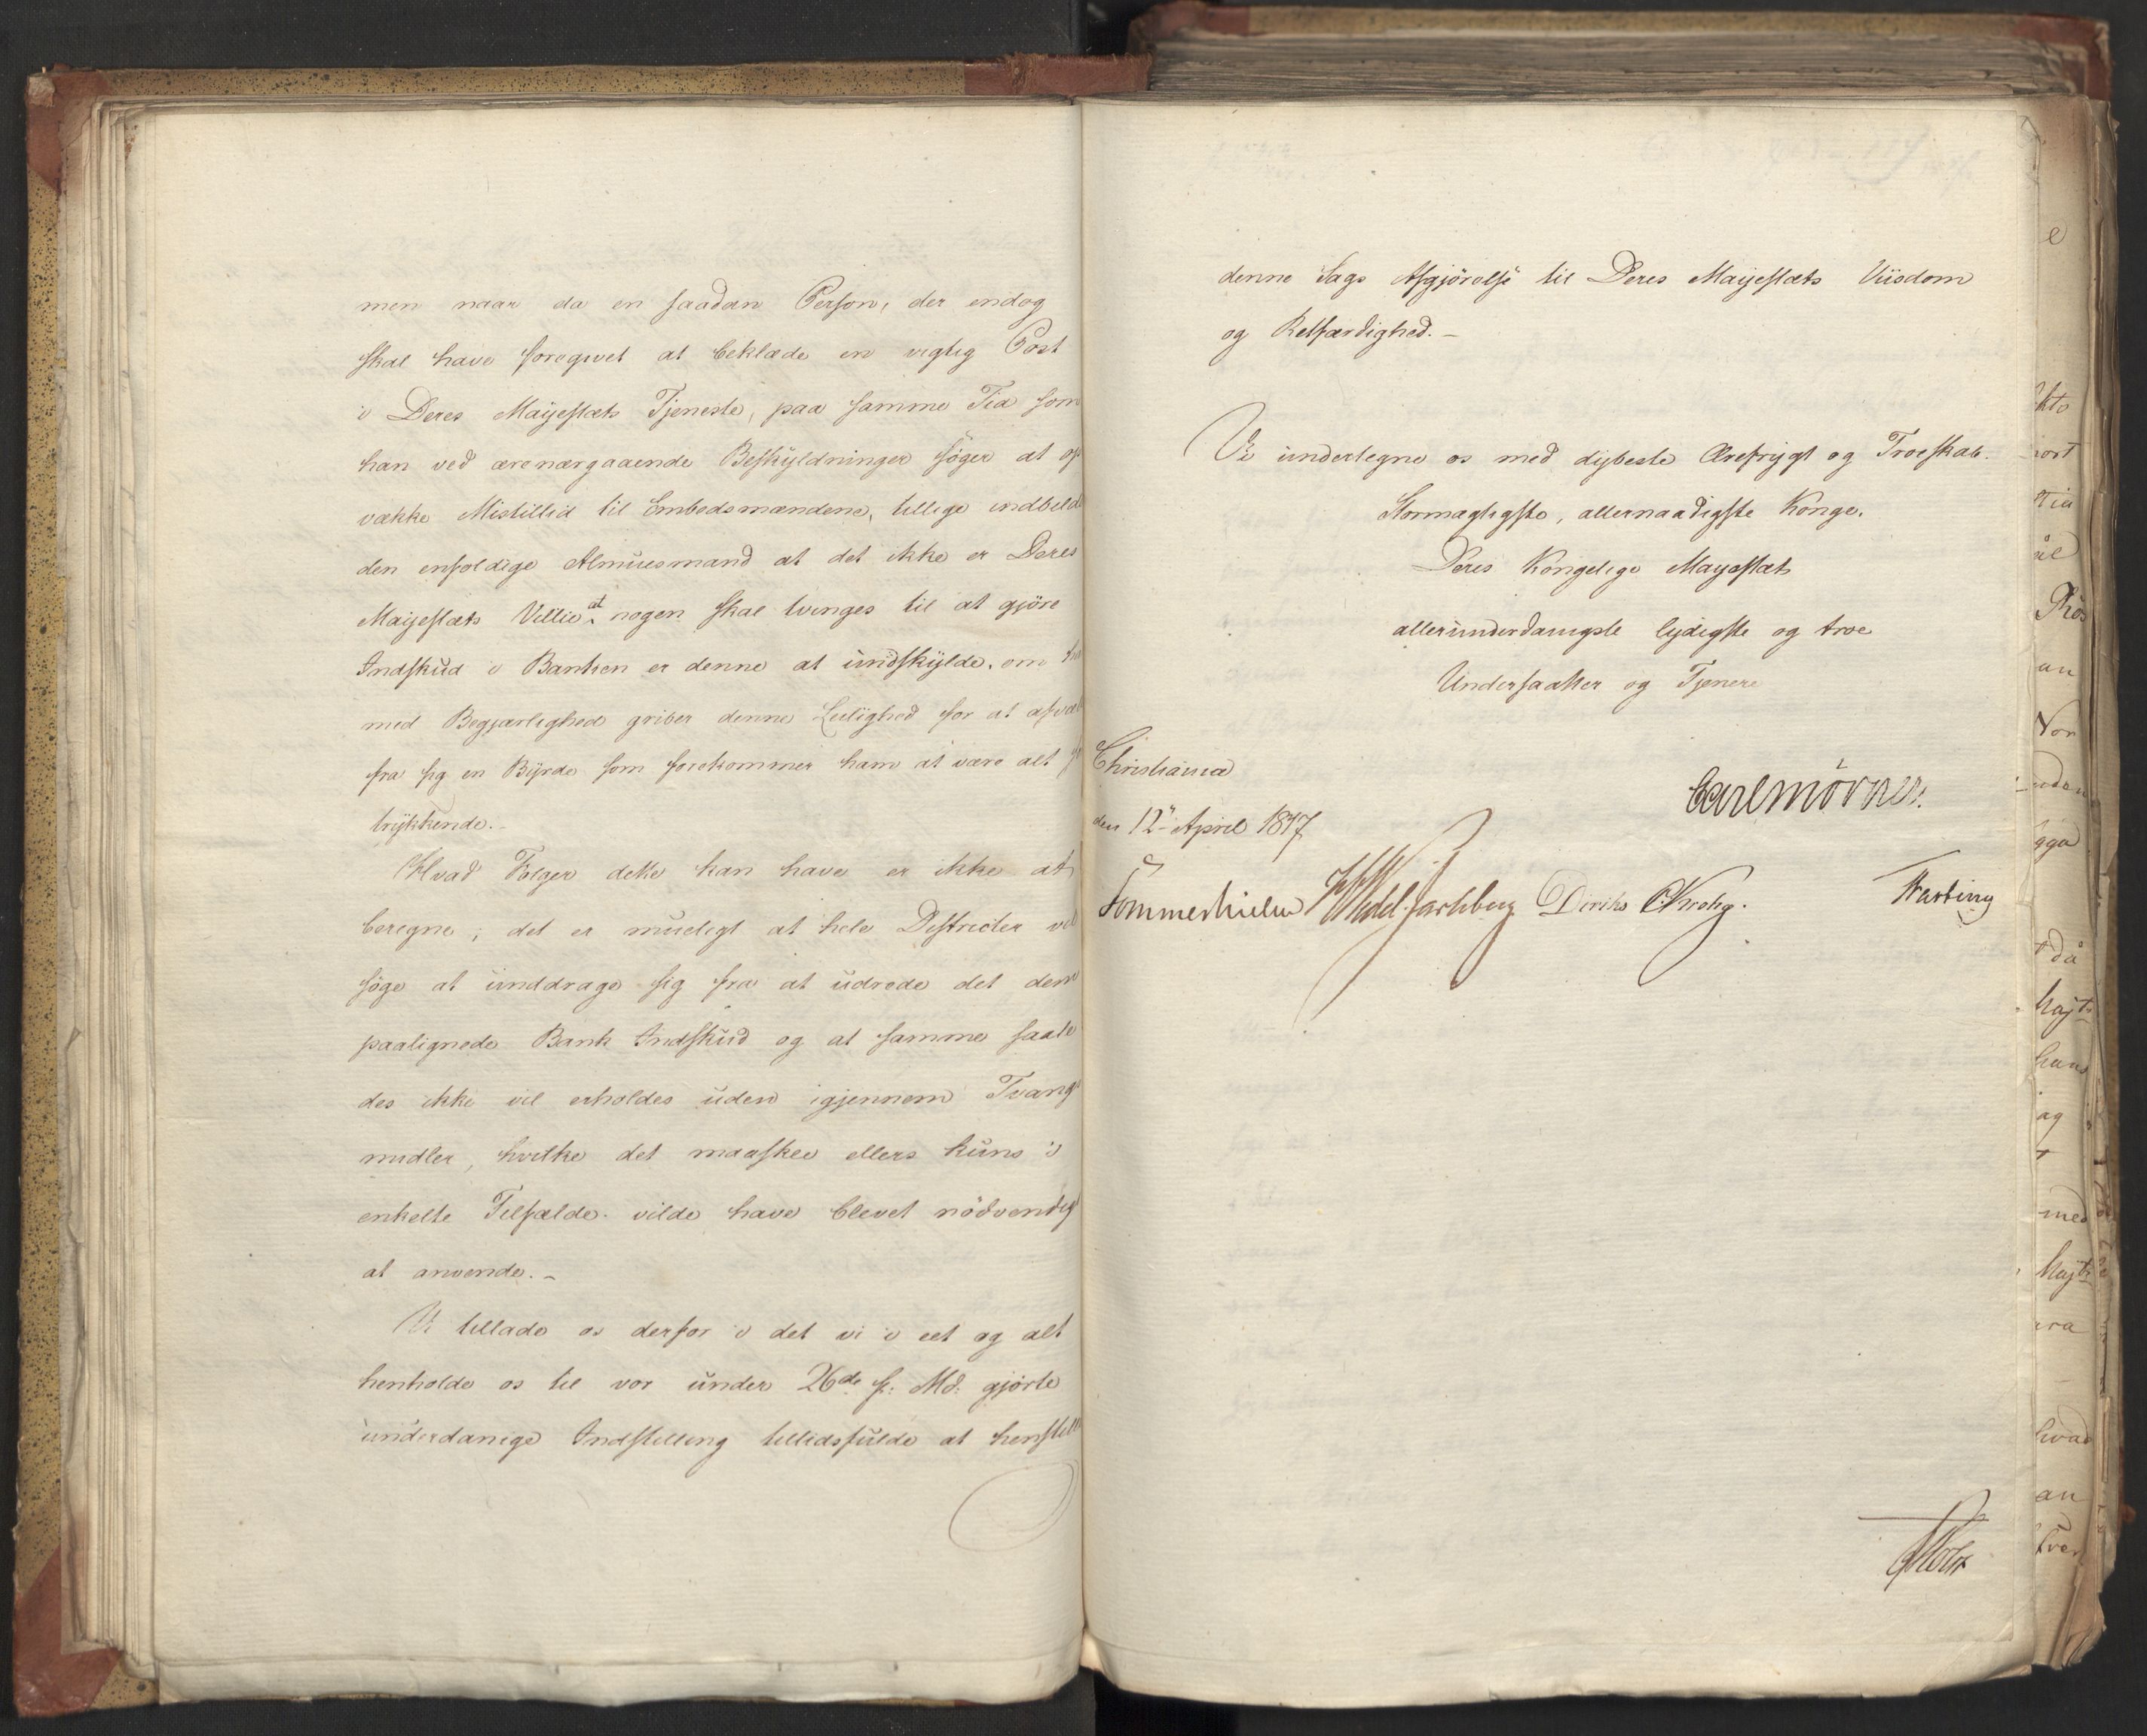 men naar da en saadan Person, der endog
skal have foregivet at beklæde en vigtig Post
i Deres Mayestæts Tjeneste, paa samme Tid som
han ved ærenærgaaende Beskyldninger söger at op
vække Mistillid til Embedsmændene, tillige indbilde
den enfoldige Almuesmand at det ikke er Deres
Mayestæts Villie at nogen skal tvinges til at gjöre
Indskud i Banken er denne at undskylde, om han
med Begjærlighed griber denne Leilighed for at afvæl
fra sig en Byrde som forekommer ham at være alt for
trykkende.-
Hvad Fölger dette kan have er ikke at
beregne; det er mueligt at hele Districter vil
söge at unddrage sig fra at udrede det dem
paalignede Bank Indskud og at samme saale
des ikke vil erholdes uden igjennem Tvangs
midler, hvilke det maaskee ellers kuns i
enkelte Tilfælde vilde have blevet nödvendigt
at anvende.-
Vi tillade os derfor i det vi i eet og alt
henholde os til vor under 26de f: Md: gjorte
underdanige Indstilling tillidsfulde at henstille
denne Sags Afgjörelse til Deres Mayestæts Viisdom
og Retfærdighed.-
Vi undertegne os med dybeste Ærefrygt og Troeskab.
Stormægtigste, allernaadigste Konge.
Deres Kongelige Mayestæts
allerunderdanigste lydigste og troe
Undersaatter og Tjenere
Christiania
den 12te April 1817
Carl Mörner.
Sommerhielm HWedel Jarlsberg Diriks CKrohg. Fasting
e
kto
Nor
hajt
hans
ag
med
Majts
hvad
an